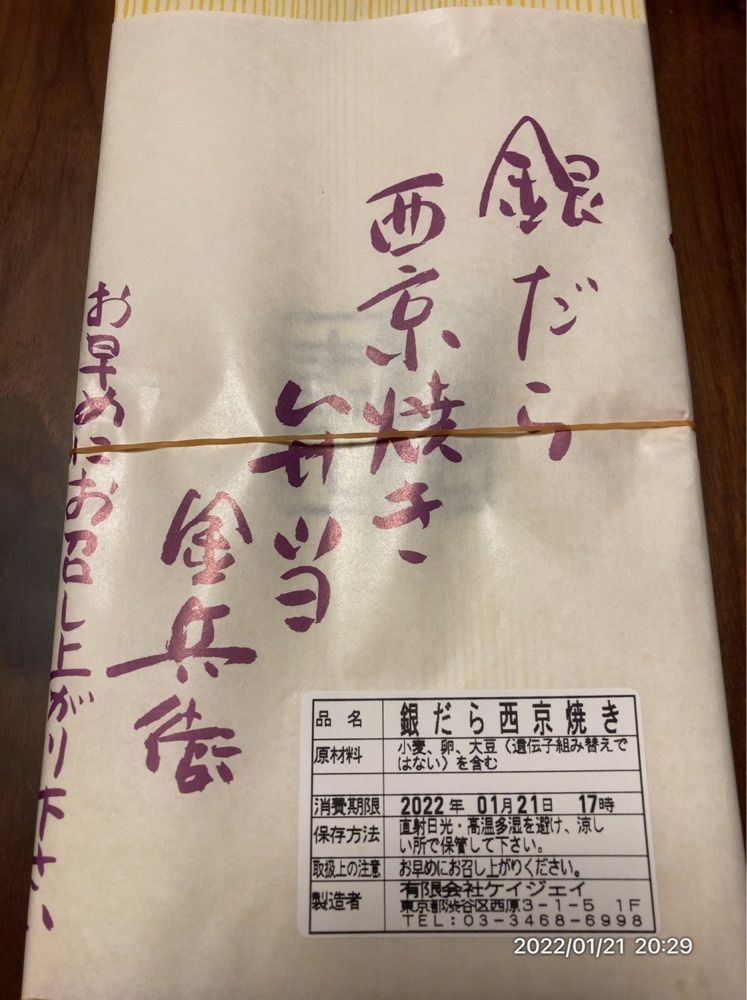 銀だら
西京焼き
弁当
金兵衛
お早めにお召し上がり下さい
品名 銀だら西京焼き
原材料 小麦、卵、大豆（遺伝子組み替えで
はない）を含む
消費期限 2022年 01月21日 17時
保存方法 直射日光・高温多湿を避け、涼し
い所で保管して下さい。
取扱上の注意 お早めにお召し上がりください。
製造者 有限会社ケイジェイ
東京都渋谷区西原3-1-5 1F
TEL:03-3468-6998
2022/01/21 20:29